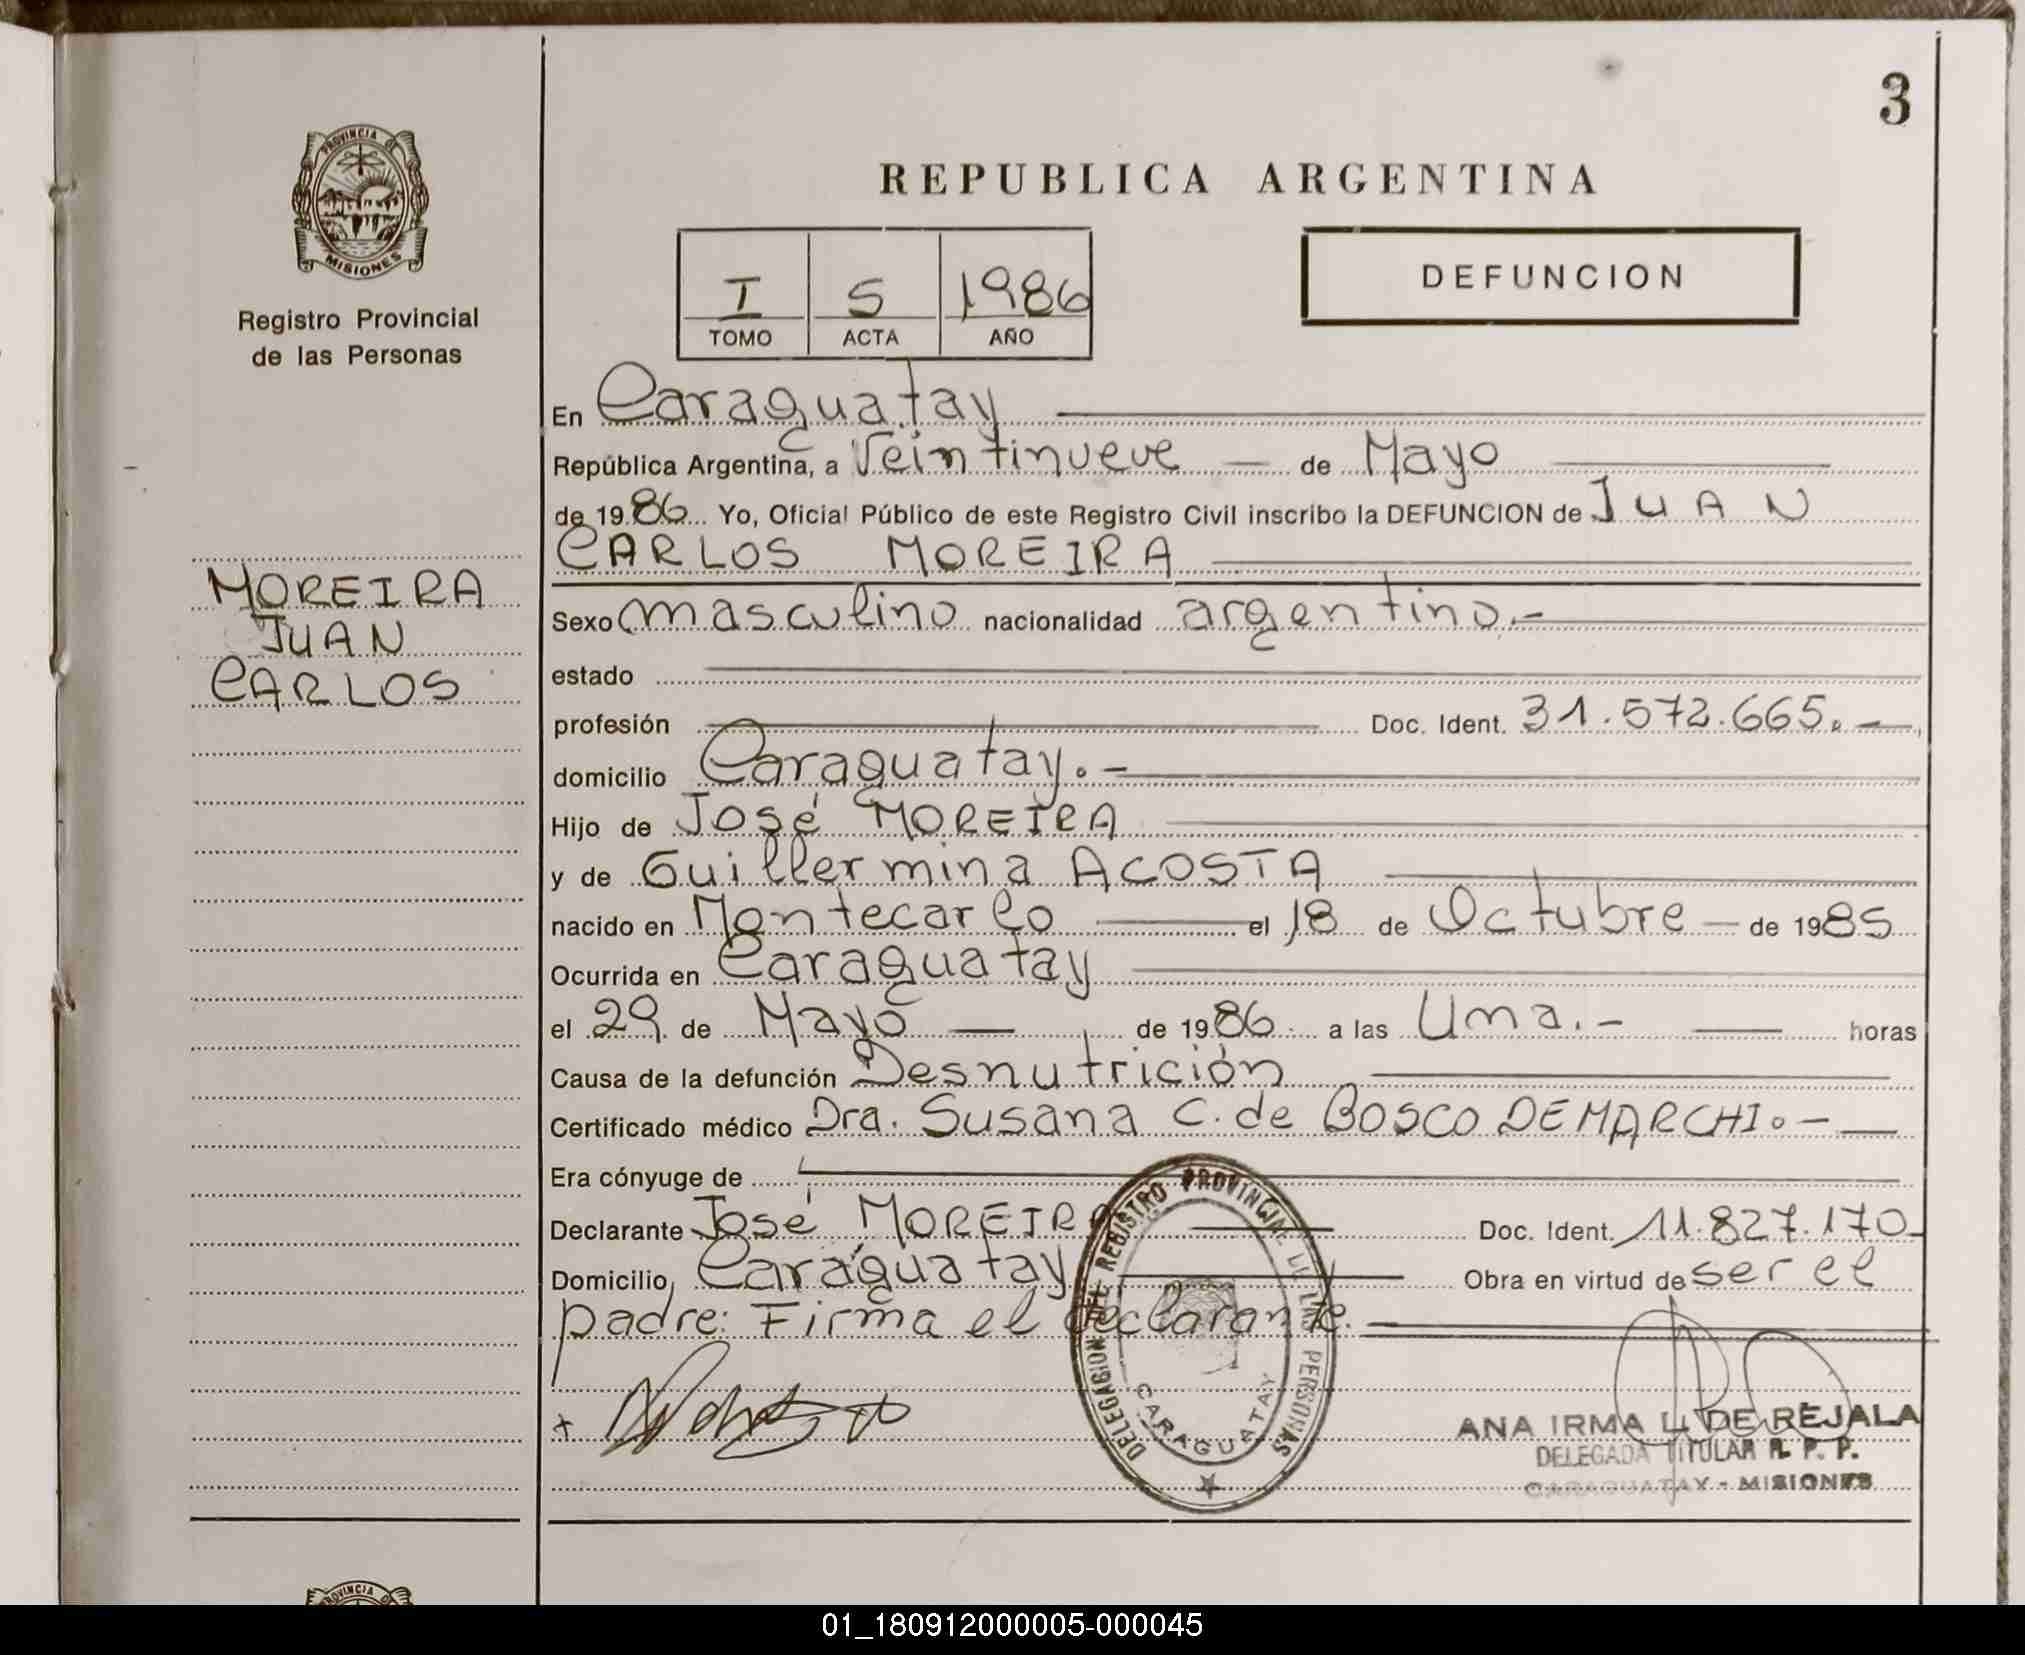 3
PROVINCIA DE
MISIONES
Registro Provincial
de las Personas
MOREIRA
JUAN
CARLOS
REPUBLICA ARGENTINA
I S 1986
TOMO ACTA AÑO
DEFUNCION
En Caraguatay
República Argentina, a Veintinueve de Mayo
de 1986 Yo, Oficial Público de este Registro Civil inscribo la DEFUNCION de JUAN
CARLOS MOREIRA
Sexo masculino nacionalidad argentino.-
estado
profesión Doc. Ident. 31.572.665.-
domicilio Caraguatay.-
Hijo de José MOREIRA
y de Guillermina ACOSTA
nacido en Montecarlo el 18 de Octubre - de 1985
Ocurrida en Caraguatay
el 29 de Mayo de 1986 a las Una.- horas
Causa de la defunción Desnutrición
Certificado médico Dra. Susana C. de BOSCO DEMARCHI.-
Era cónyuge de
Declarante José MOREIRA Doc. Ident. 11.827.170
Domicilio Caraguatay Obra en virtud de ser el
padre: Firma el declarante.
DELEGACION DEL REGISTRO PROVINCIAL DE LAS PERSONAS
CARAGUATAY
ANA IRMA L. DE REJALA
DELEGADA TITULAR R. P. P.
CARAGUATAY - MISIONES
PROVINCIA DE
01_180912000005-000045